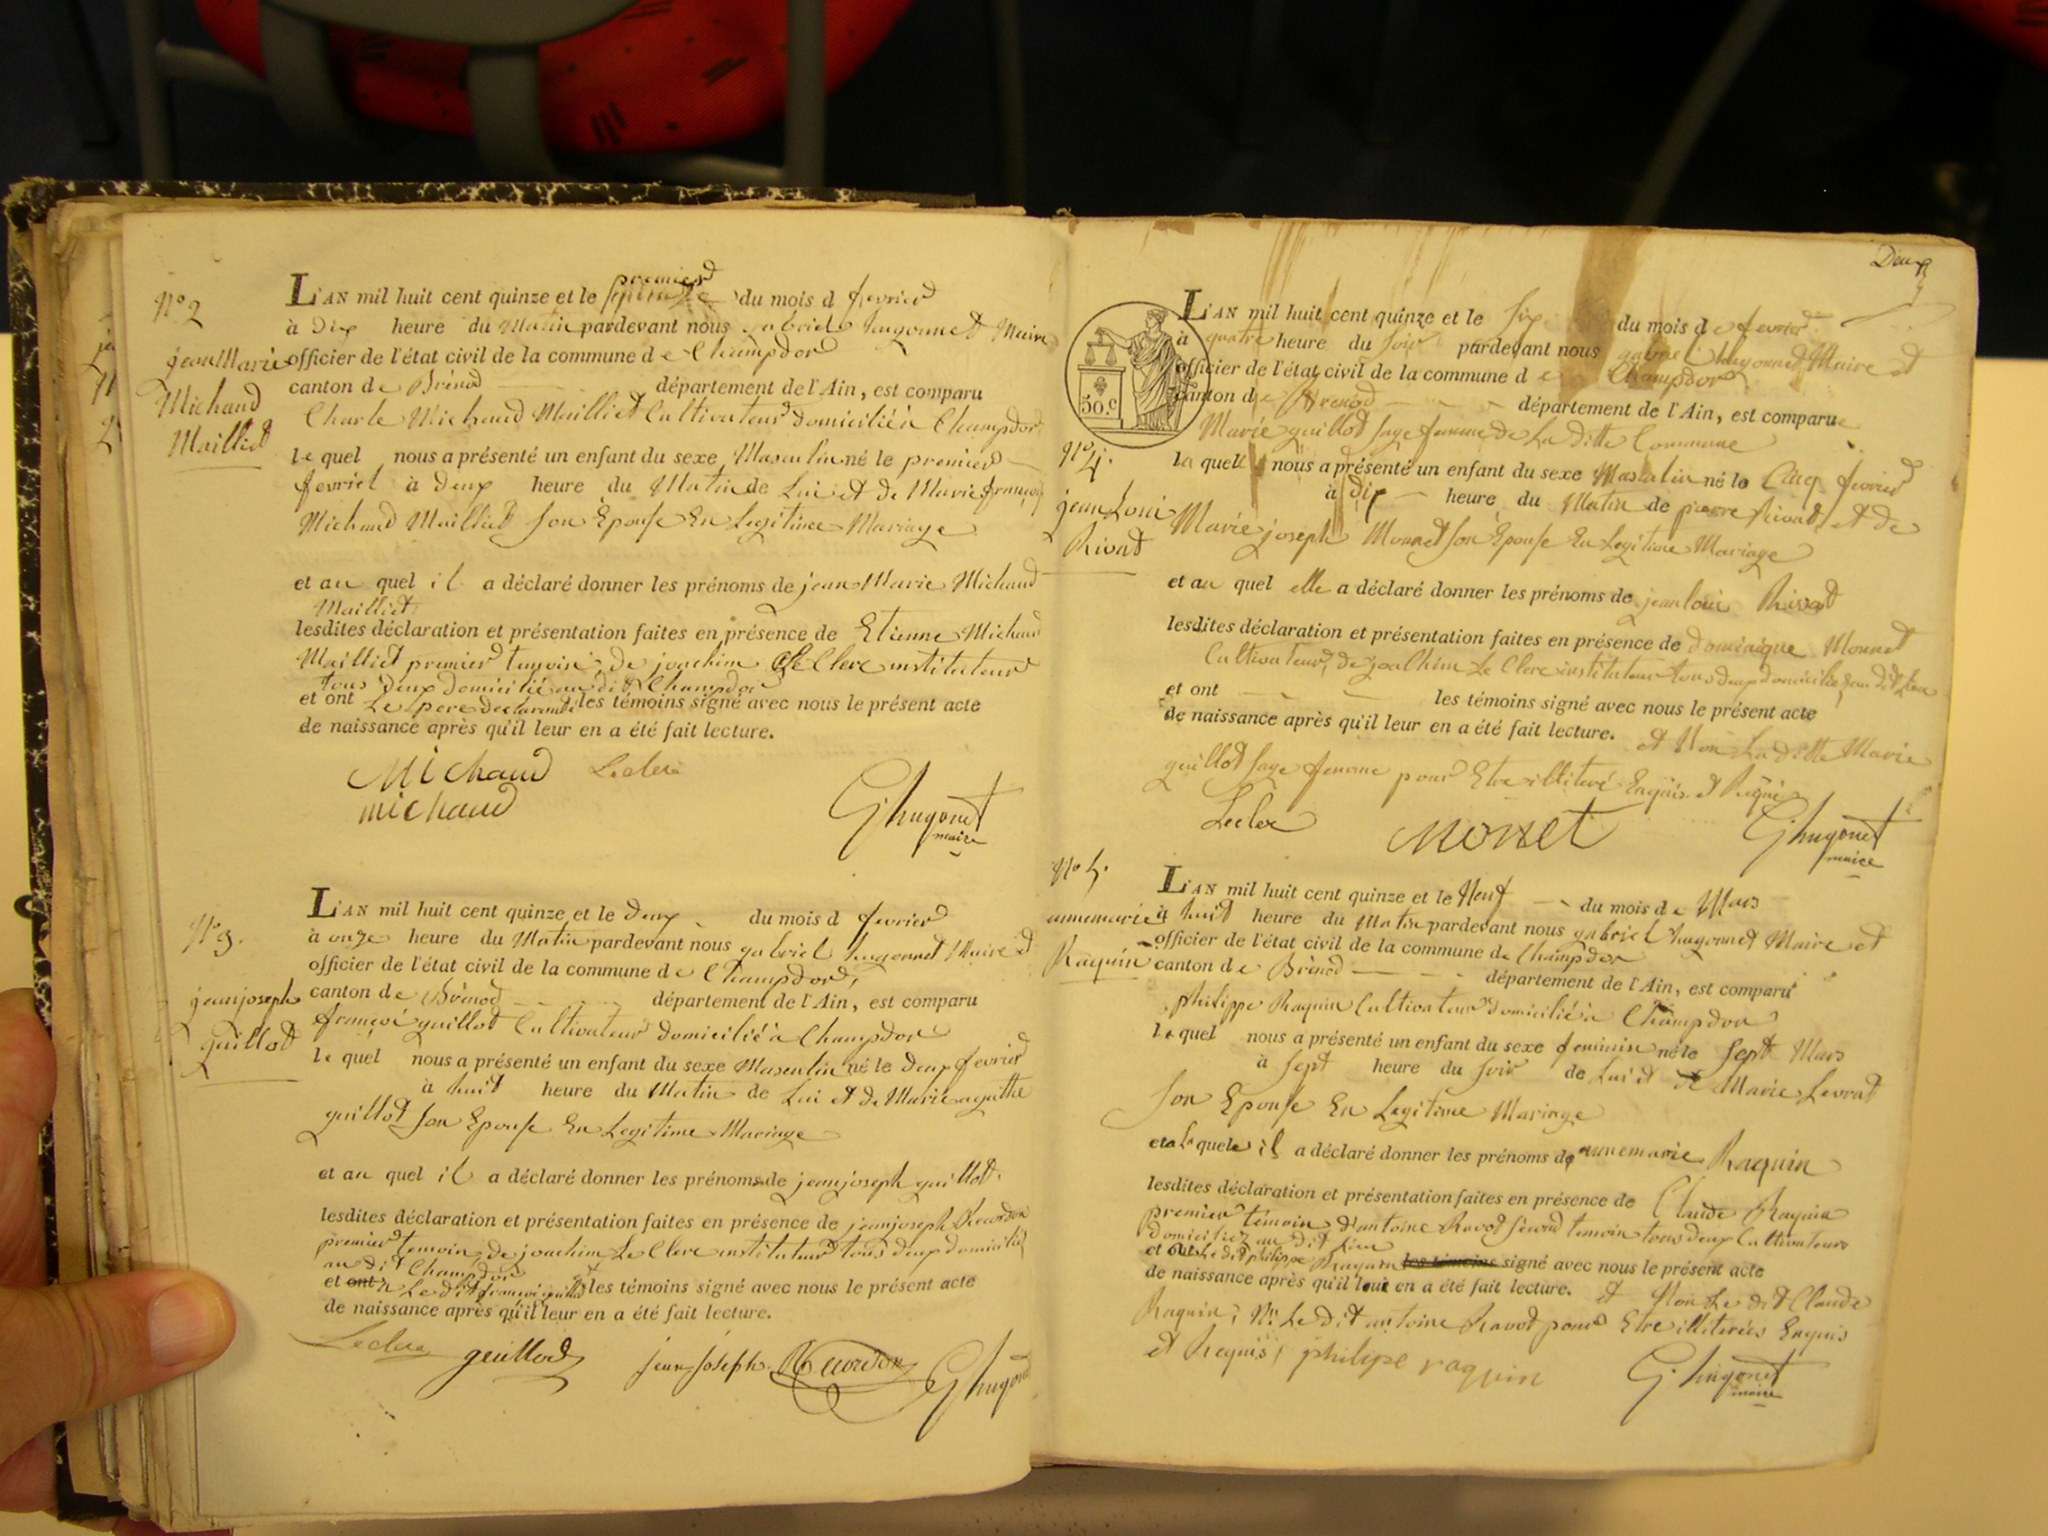 N.º 2
jean Marie
Michaud
Mailliet
premier
L'AN mil huit cent quinze et le du mois d fevrier
à dix heure du Matin pardevant nous gabriel hugonnet Maire
officier de l'état civil de la commune de Champdor
canton de Brénod département de l'Ain, est comparu
Charle Michaud Mailliet Cultivateur domicilié à Champdor
le quel nous a présenté un enfant du sexe Masculin né le premier
fevriel à deux heure du Matin de Lui et de Marie françoise
Michaud Mailliet son Epouse En Legitime Mariage
et au quel il a déclaré donner les prénoms de jean Marie Michaud
Mailliet
lesdites déclaration et présentation faites en présence de Etienne Michaud
Mailliet premier temoin, de joachim Le Clerc instituteur
tous deux domicilié au dit Champdor
et ont Le pere declarant les témoins signé avec nous le présent acte
de naissance après qu'il leur en a été fait lecture.
Michaud Leclerc
michaud
G. hugonet
maire
N.º 3.
jean joseph
guillot
L'AN mil huit cent quinze et le deux du mois d fevrier
à onze heure du Matin pardevant nous gabriel hugonnet Maire et
officier de l'état civil de la commune de Champdor,
canton de Brénod département de l'Ain, est comparu
françoi guillot Cultivateur domicilié à Champdor
le quel nous a présenté un enfant du sexe Masculin né le deux fevrier
à huit heure du Matin de Lui et de Marie agathe
guillot son Epouse En Legitime Mariage
et au quel il a déclaré donner les prénoms de jean joseph guillot.
lesdites déclaration et présentation faites en présence de jean joseph Recordon
premier temoin, de joachim Le Clerc instituteur tous deux domicilié
au dit Champdor
et ont Le dit françoi guillot les témoins signé avec nous le présent acte
de naissance après qu'il leur en a été fait lecture.
Leclerc guillot jean joseph Recordon G. hugonet
Deux
50.c
L'AN mil huit cent quinze et le Six du mois de fevrier
à quatre heure du soir pardevant nous gabriel hugonnet Maire et
officier de l'état civil de la commune de Champdor
canton de Brenod département de l'Ain, est comparue
Marie guillot sage femme de La ditte Commune
N.º 4.
jean Loui
Rivat
la quelle nous a présenté un enfant du sexe Masculin né le Cinq fevrier
à dix heure du Matin de pierre Rivat et de
Marie joseph Monnet son Epouse En Legitime Mariage
et au quel elle a déclaré donner les prénoms de jean loui Rivat
lesdites déclaration et présentation faites en présence de dominique Monnet
Cultivateur, de joachim Le Clerc instituteur tous deux domicilié au dit Lieu
et ont les témoins signé avec nous le présent acte
de naissance après qu'il leur en a été fait lecture. et Non La ditte Marie
guillot sage femme pour Etre illiteré Enquis et Requis
Leclerc Monnet G. hugonet
maire
N.º 5.
anne marie
Raquin
L'AN mil huit cent quinze et le Neuf du mois de Mars
à huit heure du Matin pardevant nous gabriel hugonnet Maire et
officier de l'état civil de la commune de Champdor
canton de Brénod département de l'Ain, est comparu
philippe Raquin Cultivateur domicilié à Champdor
le quel nous a présenté un enfant du sexe feminin né le Sept Mars
à Sept heure du soir de Lui et de Marie Levrat
son Epouse En Legitime Mariage
et a la quele il a déclaré donner les prénoms de anne marie Raquin
lesdites déclaration et présentation faites en présence de Claude Raquin
premier témoin d'antoine Ravot second temoin tous deux Cultivateurs
domiciliez au dit Lieu
et ont Le dit philippe Raquin les témoins signé avec nous le présent acte
de naissance après qu'il leur en a été fait lecture. et Non Le dit Claude
Raquin, Ni Le dit antoine Ravot pour Etre illiterées Enquis
et Requis, philipe raquin
G. hugonet
maire